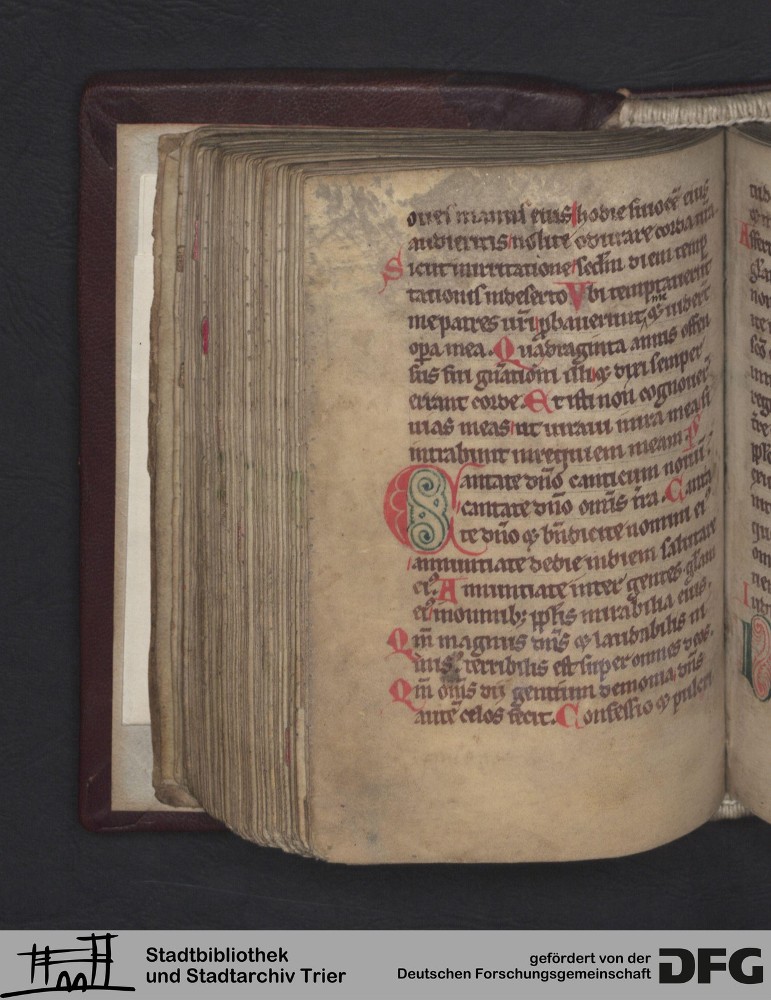 oues manus eius hodie si uocē eius
audieritis nolite obdurare corda ura.
Sicut inirritatione sedm diem temp
tationis indeserto Vbi temptauerunt
me patres uri ꝓbauerunt ⁊ uidert
opa mea. Quadraginta annis offen
sus fui gnationi illi ⁊ dixi semper
errant corde. Et isti non cognouer
uias meas ut iuraui inira mea si
intrabunt inrequiem meam. P
Cantate dno canticum nouū.
cantate dno omis tra. Canta
te dno ⁊ bndicite nomini ei
annuntiate dedie indiem salutare
ei. Annuntiate inter gentes glam
ei inomnibꝫ ipplis mirabilia eius.
Qm magnus dns ⁊ laudabilis ni
mis. terribilis est super omnes deos.
Qm oms dii gentium demonia dns
aute celos fecit. Confessio ⁊ pulcri
Stadtbibliothek
und Stadtarchiv Trier
gefördert von der
Deutschen Forschungsgemeinschaft
DFG